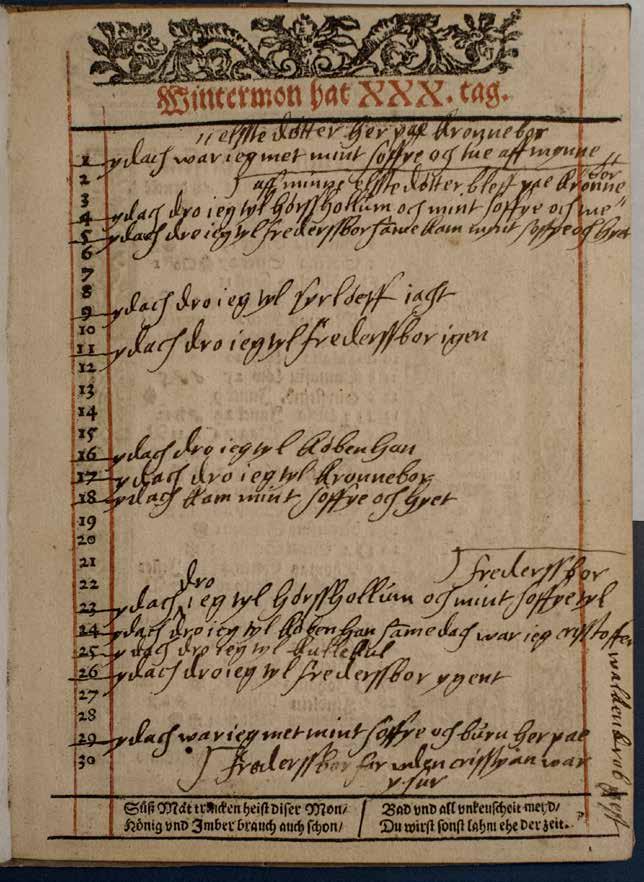 Wintermon hat XXX. tag.
elste døtter her pae kronnebor
1 ydach war ieg met mint soffye och tue aff mynne
2 aff minne elste døtter blest pae krønne bor
3
4 ydach dro ieg tyl hørsshollum och mint soffye och tue
5 ydach dro ieg tyl frederssbor same kam mint soffye och
6
7
8
9 ydach dro ieg tyl iacht
10
11 ydach dro ieg tyl frederssbor igen
12
13
14
15
16 ydach dro ieg tyl københan
17 ydach dro ieg tyl kronnebor
18 ydach kam mint soffye och gret
19
20
21
frederssbor
22 dro
23 ydach ieg tyl hørsshollum och mint soffye tyl
24 ydach dro ieg tyl københan same dach war ieg cristoffer
waldendrabs
25 ydach dro ieg tyl
26 ydach dro ieg tyl frederssbor ygent
27
28
29 ydach war ieg met mint soffye och burn her pae
30 frederssbor for uden crisstian war
y sur
Süß Mät trincken heist diser Mon/
König vnd Imber brauch auch schon/
Bad vnd all vnkeuscheit meyd/
Du wirst sonst lahm ehe der zeit.